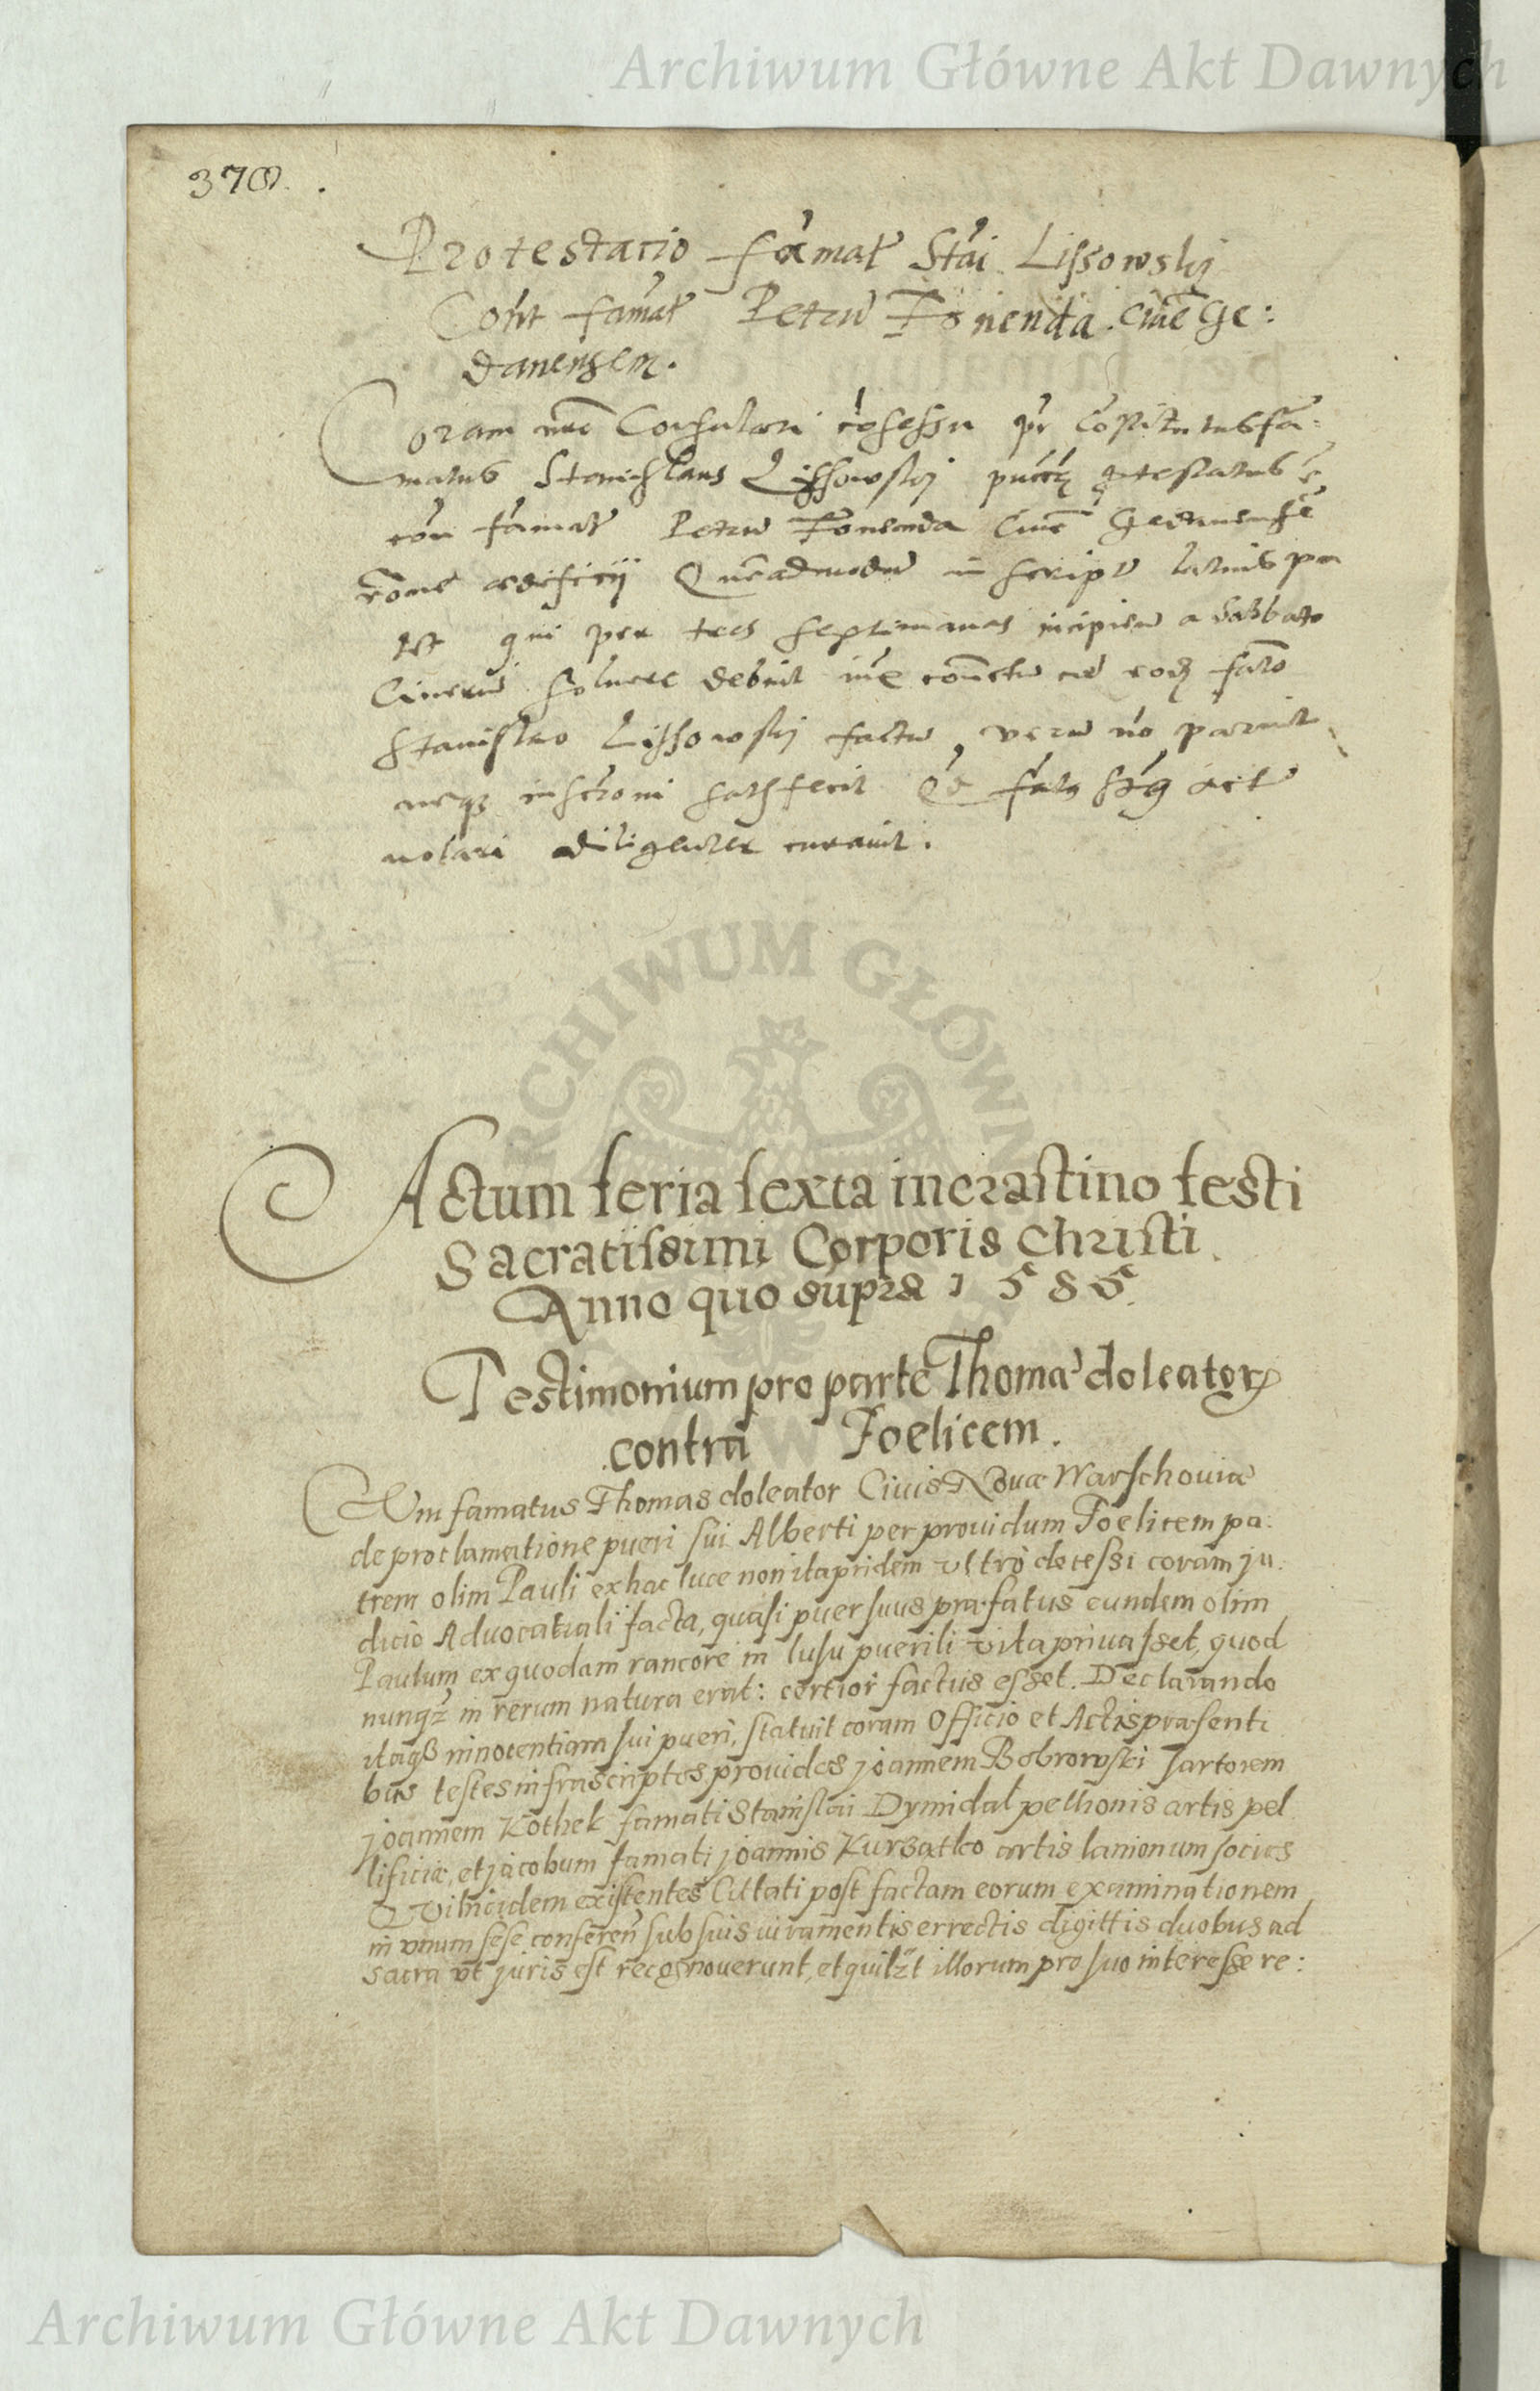 Archiwum Główne Akt Dawnych
378.
Protestacio famat Stai Lissowskj
Cont famat Petru Fonenda Ciue Ge:
danensem.
Coram nro Consulari cosessu pr Costitutus fa:
matus Stanislaus Lissowskj protestatus e
con famat Petru Fonenda Ciue Gedanense
rone aedificij Queadmodu in scripto latius pa
tet qui per tres septimanas incipien a Sabbato
Cineru soluere debuit cu eod fato
Stanislao Lissowskj factu, veru no paruit
neqz inscroni satisfecit Qd acte
notari diligenter curauit.
ARCHIWUM GŁÓWN
Actum feria sexta incrastino festi
Sacratissimi Corporis Christi
Anno quo supra 1585.
Testimonium pro parte Thoma doleatorz
contra Foelicem.
Cum famatus Thomas doleator Ciuis Nouæ Warschouiæ
de proclamatione pueri sui Alberti per prouidum Foelicem pa:
trem olim Pauli ex hac luce non ita pridem vltro decessi coram ju:
dicio Aduocatiali facta, quasi puer suus præfatus eundem olim
Paulum ex quodam rancore in lusu puerili vita priuasset, quod
nunqz in rerum natura erat: certior factus esset. Declarando
itaqз innocentiam sui pueri, statuit coram Officio et Actis præsenti
bus testes infrascriptos prouidos joannem Bobrowski sartorem
joannem Kothek famati Stanislai Dymidat pellionis artis pel
lificiæ, et jacobum famati joannis Kurzatko artis lanionum socios
Qui ibidem existentes Cittati post factam eorum examinationem
in vnum sese conferen sub suis iuramentis errectis digittis duobus ad
sacra vt juris est recognouerunt, et quilzt illorum pro suo interesse re:
Archiwum Główne Akt Dawnych